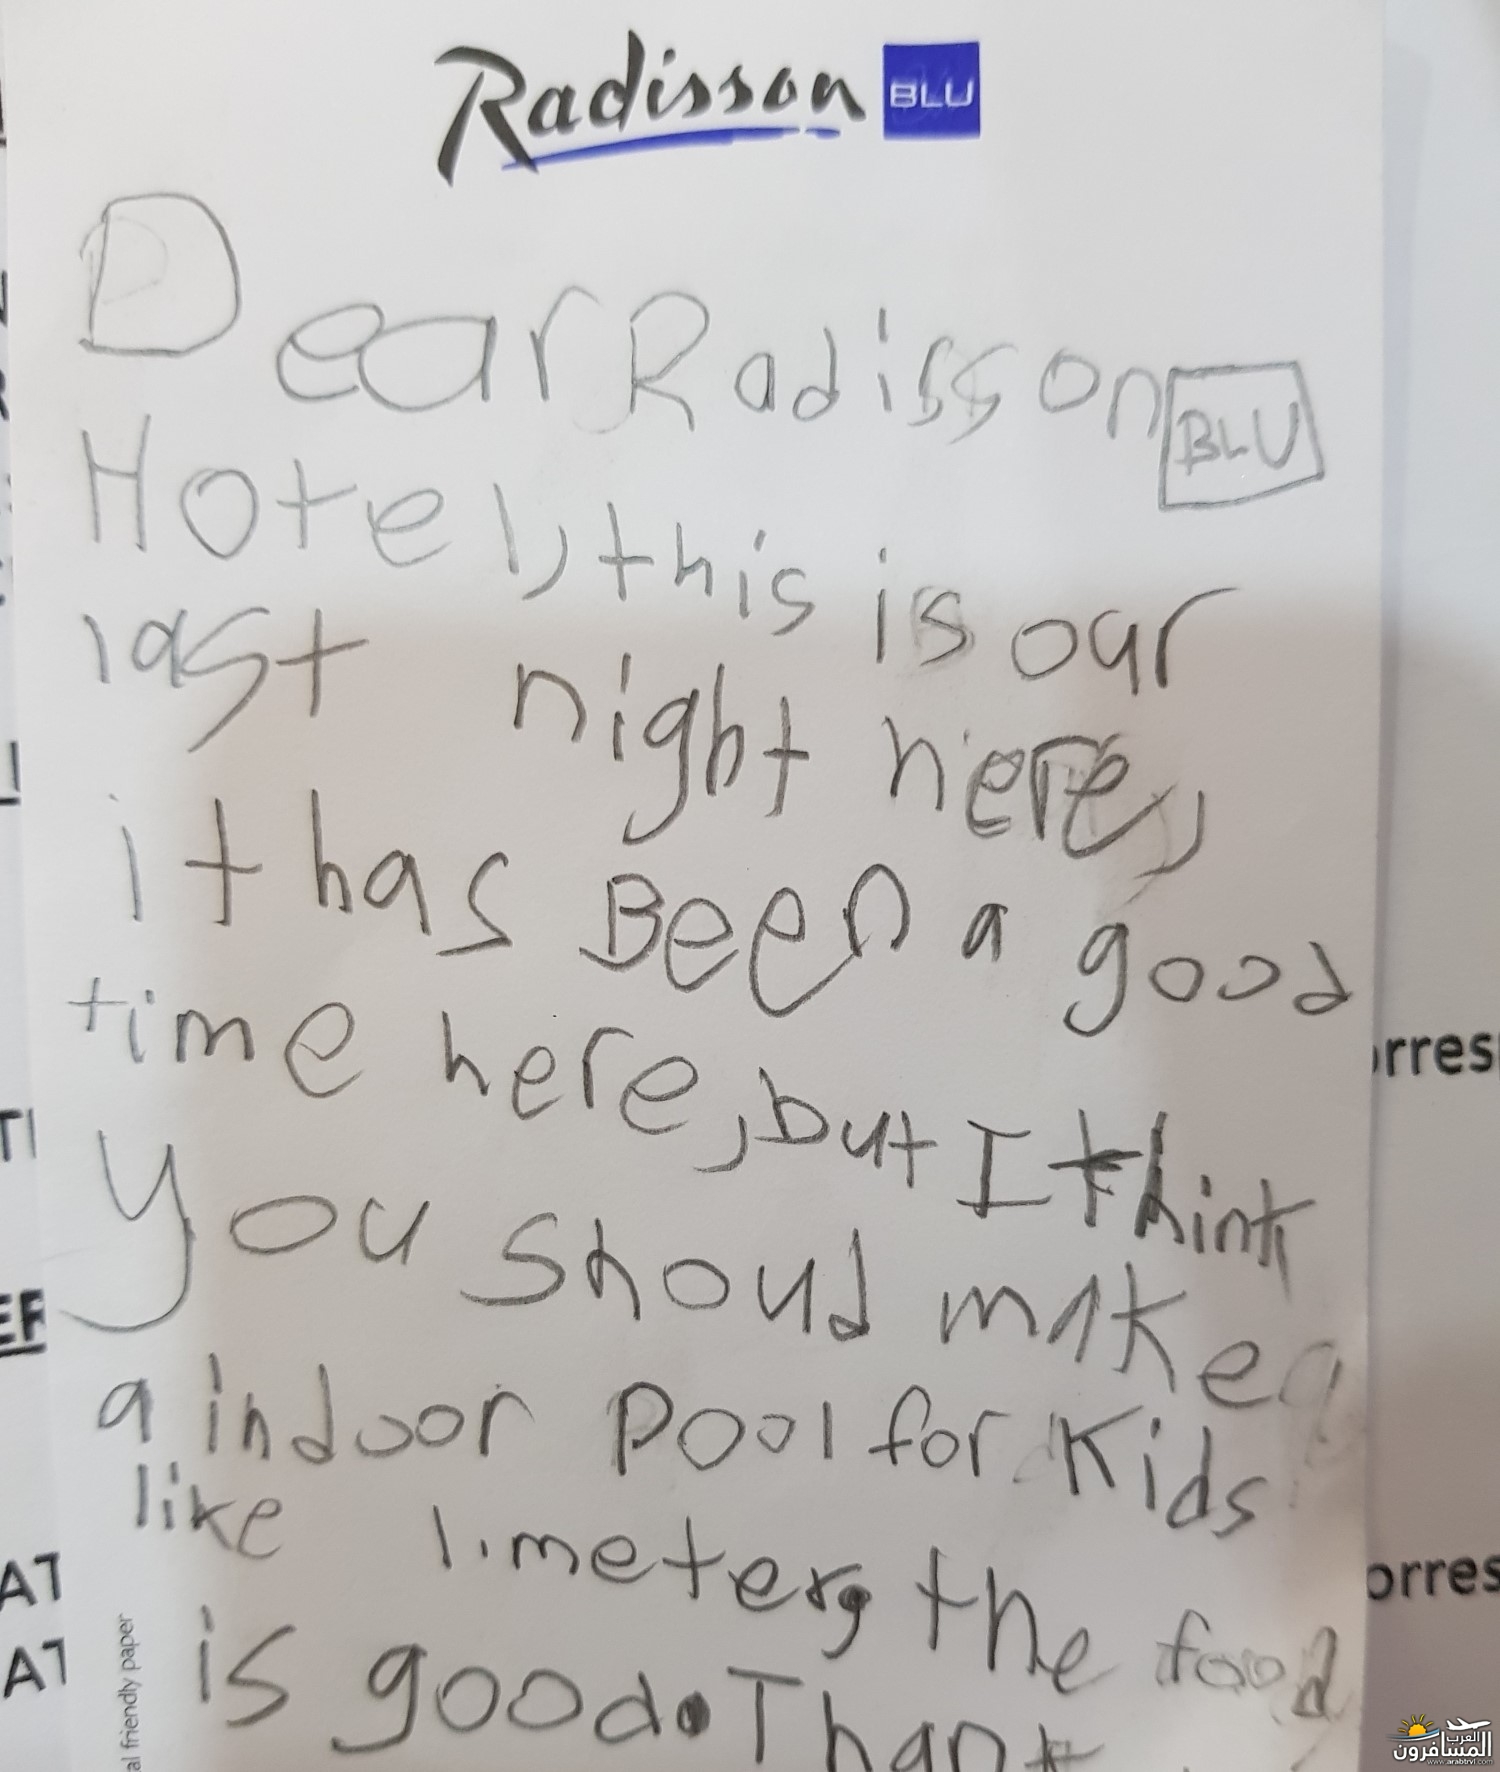 Radisson BLU
Dear Radisson BLU
Hotel, this is our
last night here,
it has Been a good
time here, but I think
you shoud make
a indoor pool for kids
like 1. meter, the food
is good. Thank
al friendly paper
orres
orres
AT
AT
المسافرون
العرب
www.arabtrvl.com